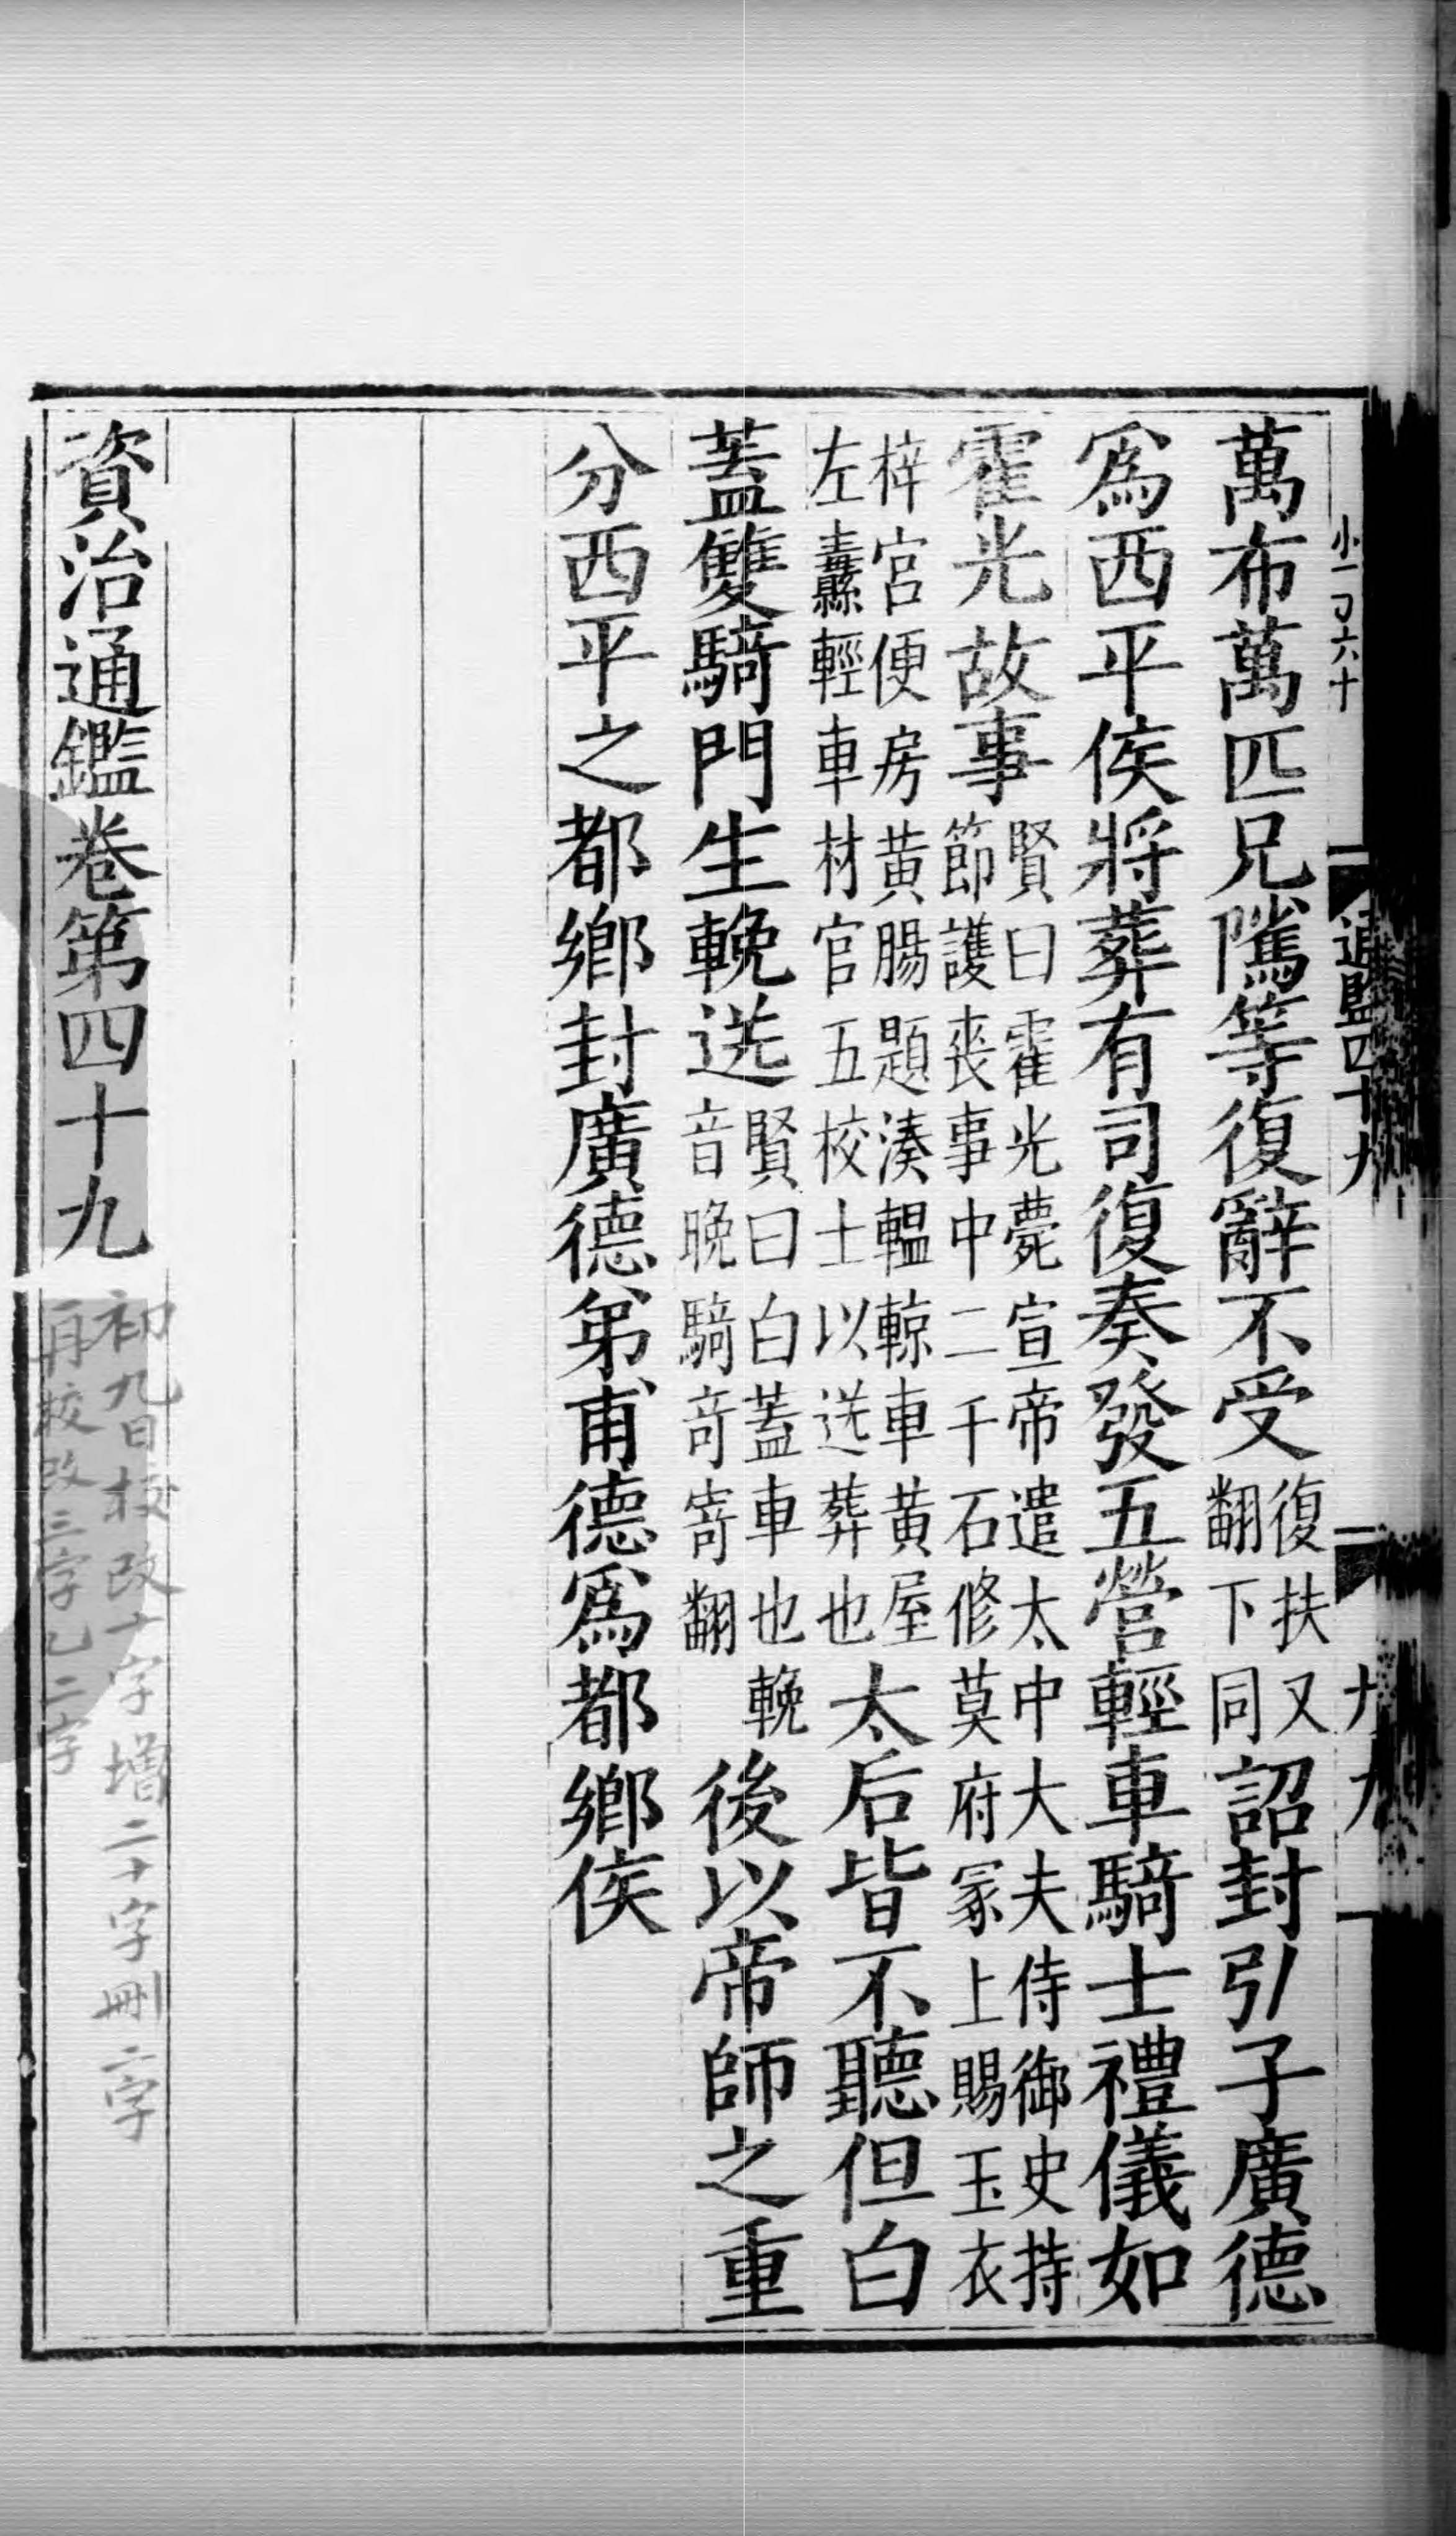 小一丁六十
通鑑四十九
十九
萬布萬匹兄隲等復辭不受復扶又翻下同詔封引子廣德
爲西平侯將葬有司復奏發五營輕車騎士禮儀如
霍光故事賢曰霍光薨宣帝遣太中大夫侍御史持節護喪事中二千石修莫府冢上賜玉衣
梓宮便房黃腸題湊轀輬車黃屋左纛輕車材官五校士以送葬也太后皆不聽但白
蓋雙騎門生輓送賢曰白蓋車也輓音晚騎奇寄翻後以帝師之重
分西平之都鄉封廣德弟甫德爲都鄉侯
資治通鑑卷第四十九
初九日校改十字增二十字刪二字
再校改三字乙二字